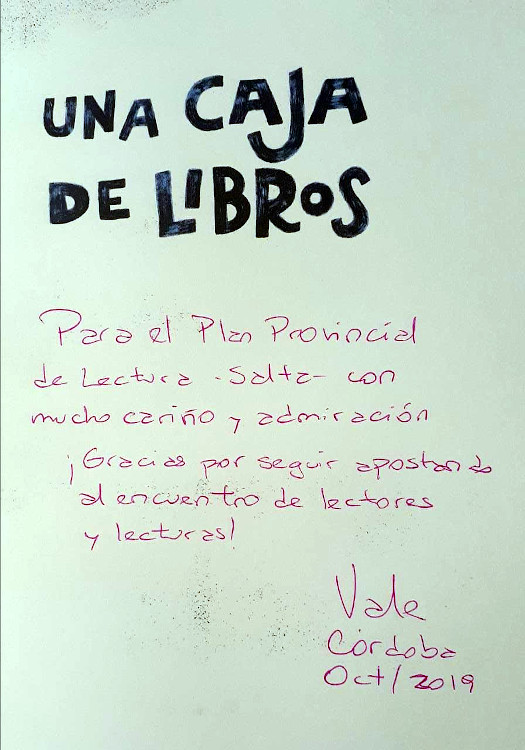 UNA CAJA
DE LIBROS
Para el Plan Provincial
de Lectura -Salta- con
mucho cariño y admiración
¡Gracias por seguir apostando
al encuentro de lectores
y lecturas!
Vale
Córdoba
Oct/2019